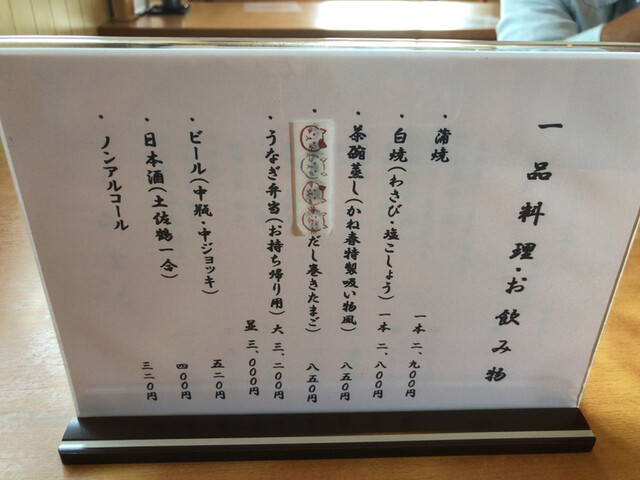 一品料理・お飲み物
・蒲焼 一本 二、九〇〇円
・白焼(わさび・塩こしょう) 一本 二、八〇〇円
・茶碗蒸し(かね春特製吸い物風) 八五〇円
・だし巻きたまご) 八五〇円
・うなぎ弁当(お持ち帰り用) 大 三、二〇〇円
並 三、〇〇〇円
・ビール(中瓶・中ジョッキ) 五二〇円
・日本酒(土佐鶴一合) 四〇〇円
・ノンアルコール 三二〇円